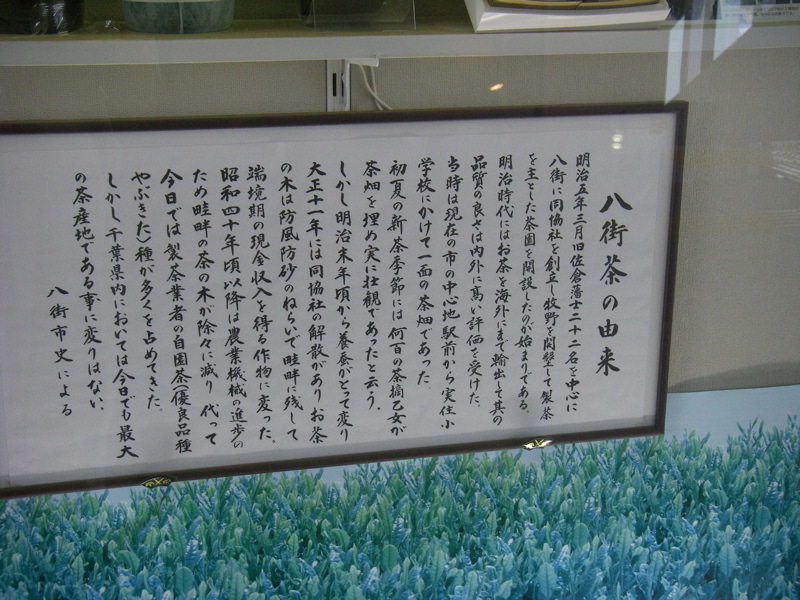 八街茶の由来
明治五年三月旧佐倉藩士二十二名を中心に
八街に同協社を創立し牧野を開墾して製茶
を主とした茶園を開設したのが始まりである。
明治時代にはお茶を海外にまで輸出して其の
品質の良さは内外に高い評価を受けた。
当時は現在の市の中心地駅前から実住小
学校にかけて一面の茶畑であった。
初夏の新茶季節には何百の茶摘乙女が
茶畑を埋め実に壮観であったと云う。
しかし明治末年頃から養蚕がとって変り
大正十一年には同協社の解散がありお茶
の木は防風防砂のねらいで畦畔に残して
端境期の現金収入を得る作物に変った。
昭和四十年頃以降は農業機械の進歩の
ため畦畔の茶の木が除々に減り代って
今日では製茶業者の自園茶(優良品種
やぶきた)種が多くを占めてきた。
しかし千葉県内においては今日でも最大
の茶産地である事に変りはない。
八街市史による